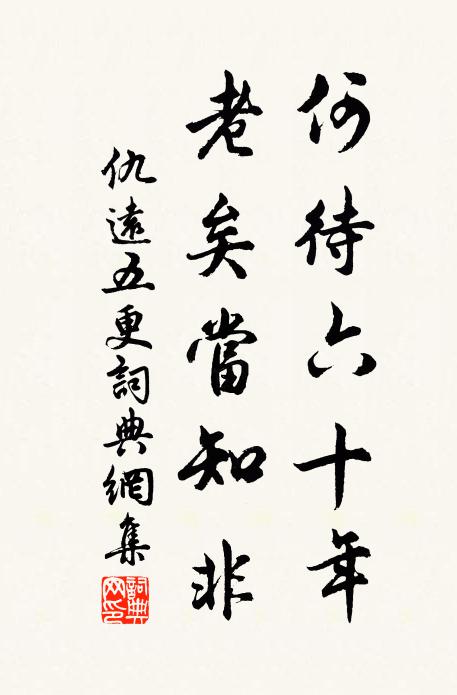 何待六十年
老矣當知非
仇遠五更詞典網集
詞典网印